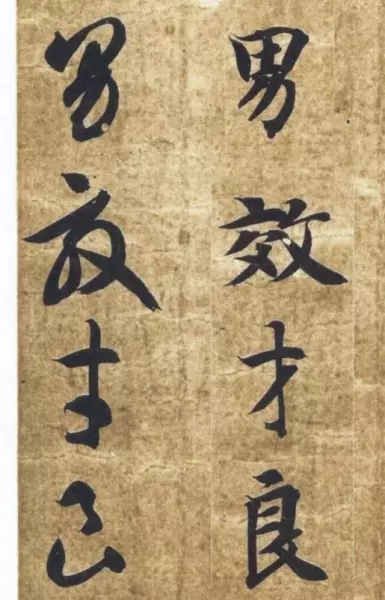 男效才良
男效才良